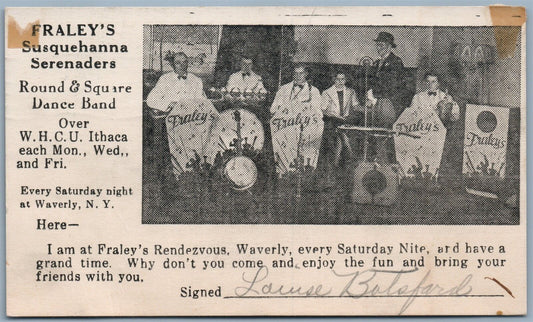 FRALEY'S
Susquehanna
Serenaders
Round & Square
Dance Band
Over
W.H.C.U. Ithaca
each Mon., Wed,,
and Fri.
Every Saturday night
at Waverly, N. Y.
Here—
Fraley's
Fraley's
Fraley's
Fraley's
I am at Fraley's Rendezvous, Waverly, every Saturday Nite, and have a
grand time. Why don't you come and enjoy the fun and bring your
friends with you.
Signed Louise Botsford